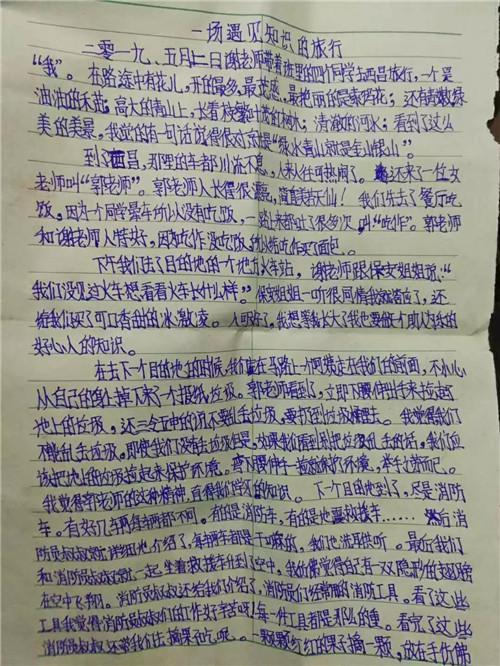 一场遇见知识的旅行
二零一九、五月二日谢老师带着班里的四个同学去西昌旅行,一个是
“我”。在路途中有花儿,开的最多,最茂盛,最艳丽的是索玛花;还有青嫩绿
油油的禾苗;高大的青山上,长着枝繁叶茂的树木;清澈的河水;看到了这么
美的美景,我觉的有一句话说得很对那是“绿水青山就是金山银山”。
到了西昌,那里的车都川流不息,人来人往可热闹了。还来了一位女
老师叫“郭老师”。郭老师人长得很漂亮,简直美若天仙!我们先去了餐厅吃
饭,因为一个同学晕车所以没有吃饭,一路上来都吐了很多次,叫“吃作”。郭老师
和谢老师人特好,因为吃作没吃饭,所以给吃作买了面包。
下午我们去了目的地的一个地方火车站,谢老师跟保安姐姐说:“
我们没见过火车想看看火车长什么样”。保安姐姐一听很同情我就答应了,还
给我们买了可口香甜的冰激凌。人可好了,我想等我长大了我也要做个助人为乐的
好心人的知识。
在去下一个目的地的时候,我们走在马路上一个阿姨走在我们的前面,不小心
从自己的身上掉下来了一个报纸垃圾。郭老师看到了,立即下腰伸出手来捡起
地上的垃圾,还三令五申的说不要乱丢垃圾,要扔到垃圾桶里去。我觉得我们
不敢乱丢垃圾。即使我们没有丢垃圾但是,如果我们看到别把垃圾乱丢的话,我们应
该把地上的垃圾捡起来保护环境。弯下腰伸手一捡就保护环境,举手之劳而已。
我觉得郭老师的这种精神,值得我们学习的知识。下一个目的地到了,尽是消防
车。有好几车辆每辆都不同。有的是消防车,有的是地震救援车……然后消
防员叔叔跟详细地介绍了,每辆车都是干嘛的,我们也洗耳恭听。最后我们
和消防员叔叔一起坐着救援车升到了空中。我仿佛觉得自己有一双隐形的翅膀
在空中飞翔。消防员叔叔还给我们介绍了,消防员们经常用的消防工具。看了这些
工具我觉得消防员叔叔们的工作好辛苦呀!每一件工具都是那么的重。看完了这些
消防员叔叔还带我们去摘果子吃呢。一颗颗红红的果子摘一颗,放在手仿佛